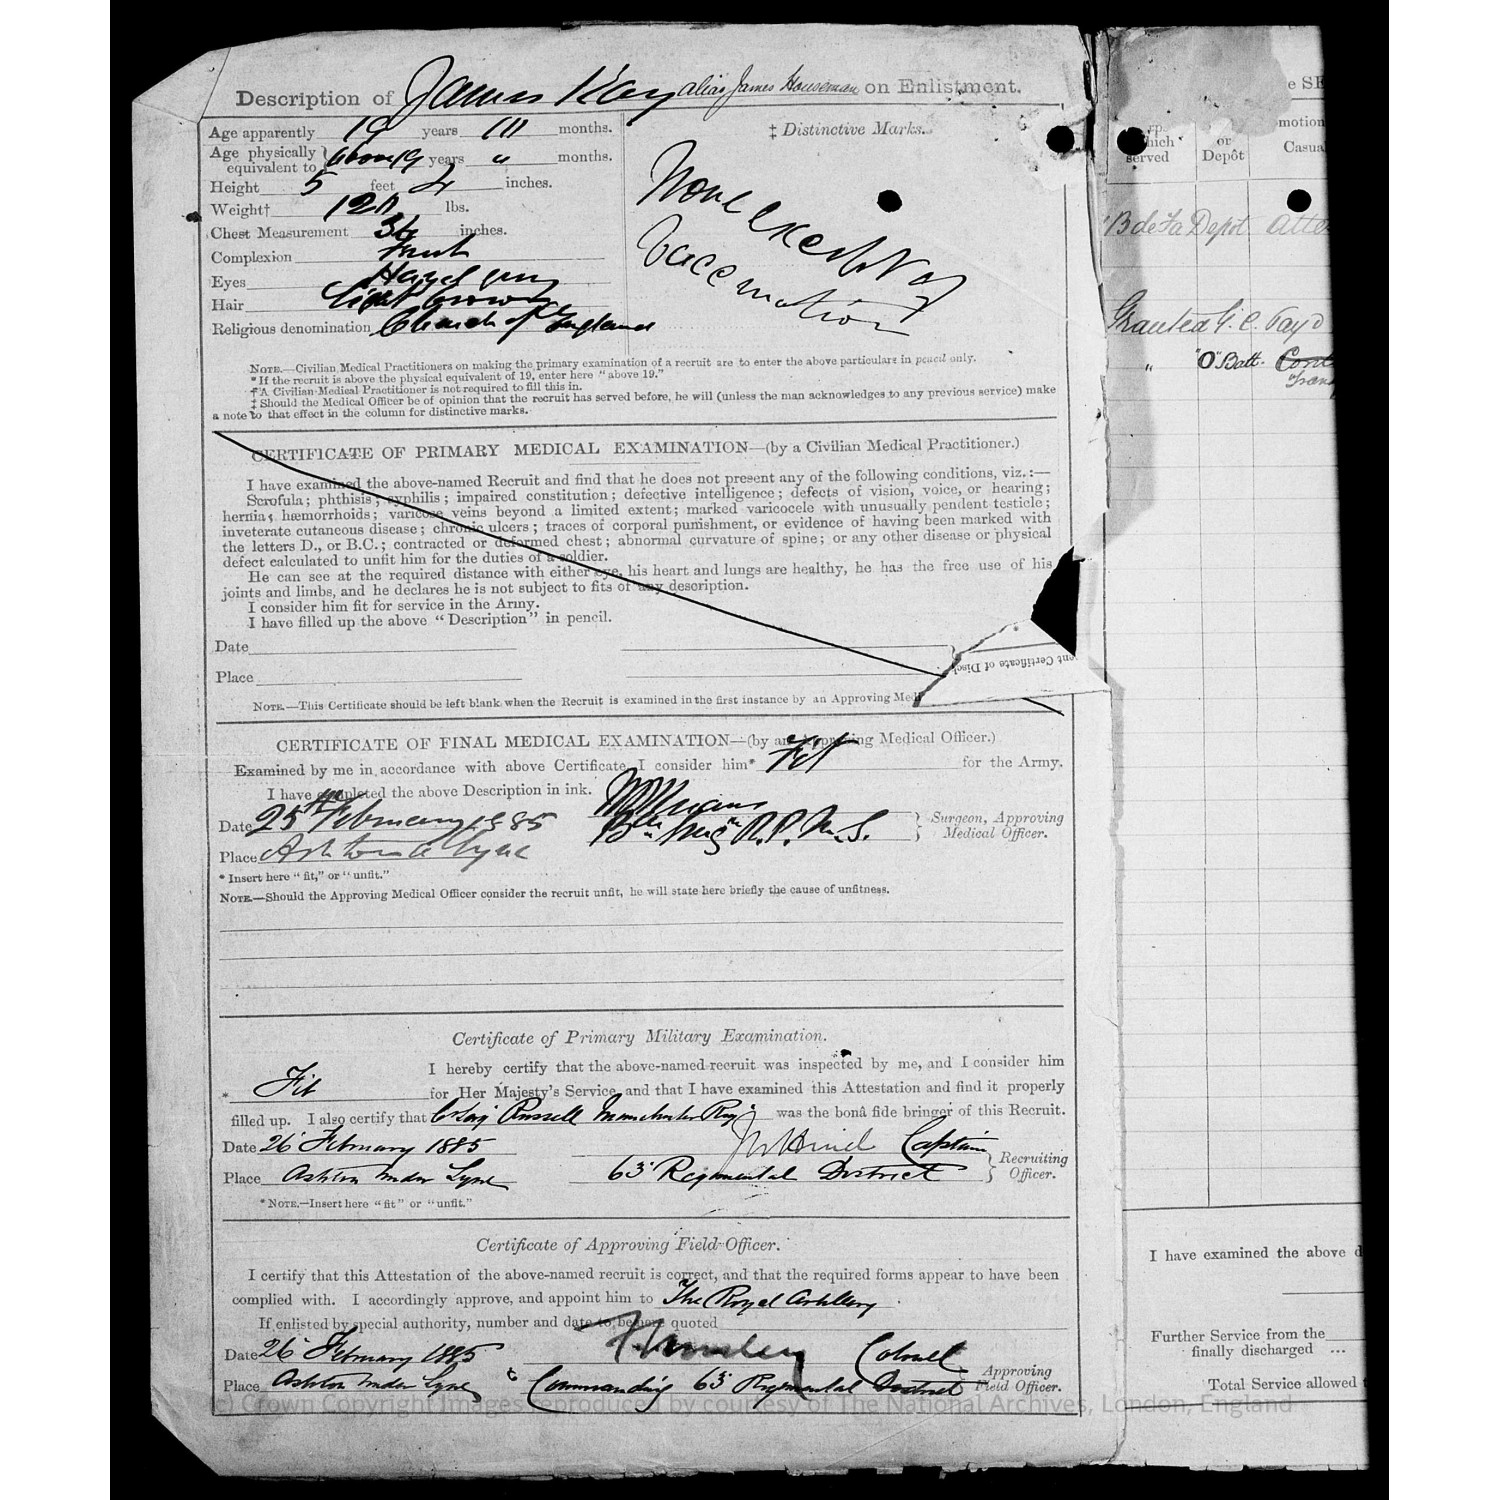 Description of James Kay alias James Houseman on Enlistment.
Age apparently 19 years 11 months.
Age physically equivalent to } above 19 years " months.
Height 5 feet 4 inches.
Weight† 120 lbs.
Chest Measurement 34 inches.
Complexion Fresh
Eyes Hazel grey
Hair light brown
Religious denomination Church of England
‡ Distinctive Marks.
None except
Vaccination
NOTE.—Civilian Medical Practitioners on making the primary examination of a recruit are to enter the above particulars in pencil only.
* If the recruit is above the physical equivalent of 19, enter here "above 19."
† A Civilian Medical Practitioner is not required to fill this in.
‡ Should the Medical Officer be of opinion that the recruit has served before, he will (unless the man acknowledges to any previous service) make
a note to that effect in the column for distinctive marks.
CERTIFICATE OF PRIMARY MEDICAL EXAMINATION—(by a Civilian Medical Practitioner.)
I have examined the above-named Recruit and find that he does not present any of the following conditions, viz.:—
Scrofula; phthisis; syphilis; impaired constitution; defective intelligence; defects of vision, voice, or hearing;
hernia; hæmorrhoids; varicose veins beyond a limited extent; marked varicocele with unusually pendent testicle;
inveterate cutaneous disease; chronic ulcers; traces of corporal punishment, or evidence of having been marked with
the letters D., or B.C.; contracted or deformed chest; abnormal curvature of spine; or any other disease or physical
defect calculated to unfit him for the duties of a soldier.
He can see at the required distance with either eye, his heart and lungs are healthy, he has the free use of his
joints and limbs, and he declares he is not subject to fits of any description.
I consider him fit for service in the Army.
I have filled up the above "Description" in pencil.
Date
Place
ent Certificate of Disch
NOTE.—This Certificate should be left blank when the Recruit is examined in the first instance by an Approving Med
CERTIFICATE OF FINAL MEDICAL EXAMINATION—(by an Approving Medical Officer.)
Examined by me in accordance with above Certificate, I consider him* Fit for the Army.
I have completed the above Description in ink.
Date 25th February 1885
Surgeon, Approving Medical Officer.
Place Ashton u Lyne
* Insert here "fit," or "unfit."
NOTE.—Should the Approving Medical Officer consider the recruit unfit, he will state here briefly the cause of unfitness.
Certificate of Primary Military Examination.
I hereby certify that the above-named recruit was inspected by me, and I consider him
* Fit for Her Majesty's Service, and that I have examined this Attestation and find it properly
filled up. I also certify that Cr Serj Russell Manchester Reg was the bonâ fide bringer of this Recruit.
Date 26 February 1885 Captain
Place Ashton under Lyne 63 Regimental District } Recruiting Officer.
* NOTE.—Insert here "fit" or "unfit."
Certificate of Approving Field Officer.
I certify that this Attestation of the above-named recruit is correct, and that the required forms appear to have been
complied with. I accordingly approve, and appoint him to The Royal Artillery.
If enlisted by special authority, number and date to be here quoted
Date 26 February 1885 Colonel
Place Ashton under Lyne Commanding 63 Regimental District Approving Field Officer.
(c) Crown Copyright Images reproduced by courtesy of The National Archives, London, England
e SE
rps
which
served
or
Depôt
motion
Casua
B de Fa Depot Atte
Granted G. C. Pay
" "O" Batt.
I have examined the above d
Further Service from the
finally discharged ...
Total Service allowed t